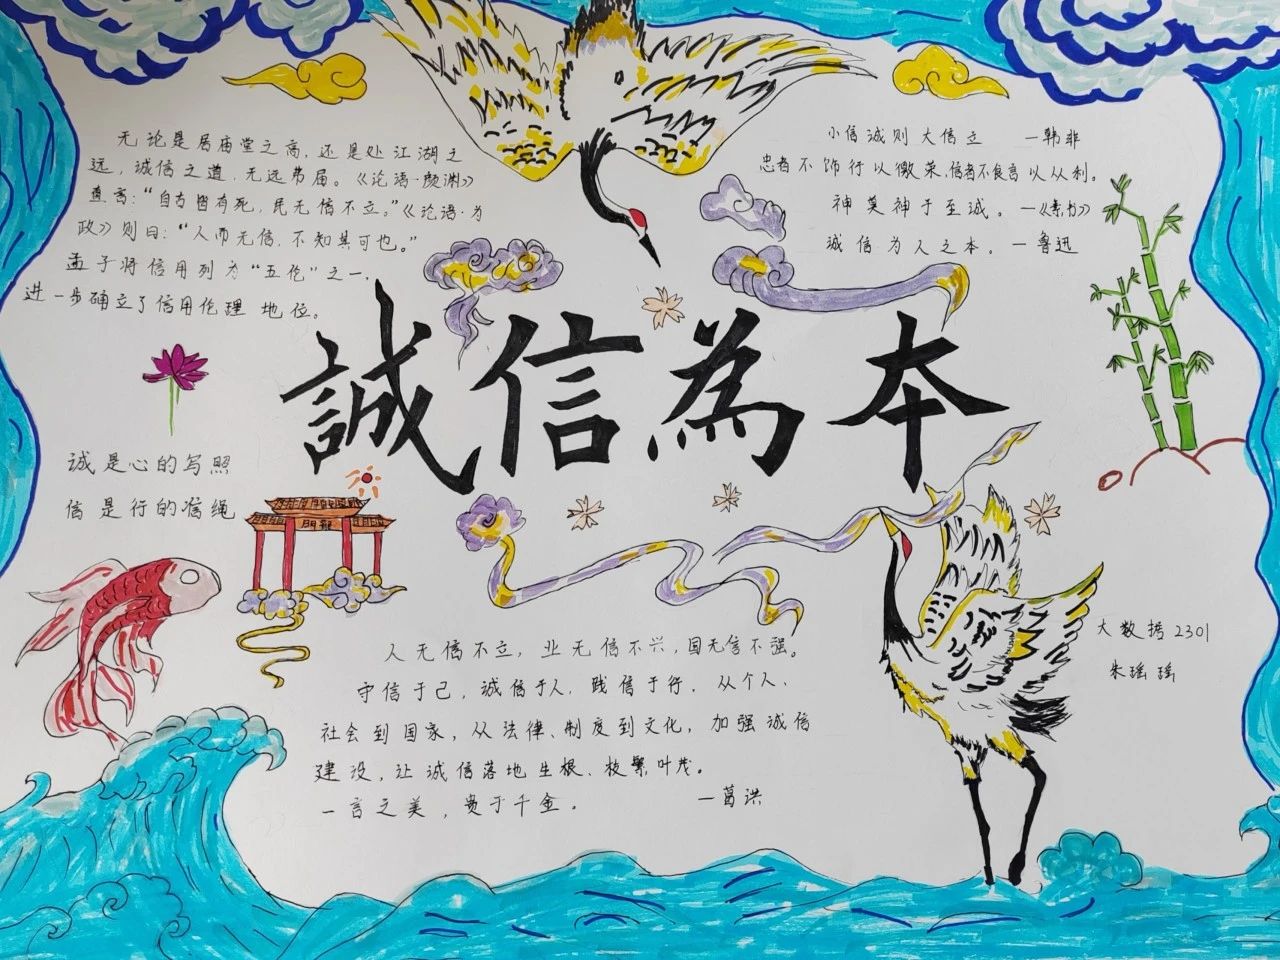 无论是居庙堂之高，还是处江湖之
远，诚信之道，无远弗届。《论语·颜渊》
直言：“自古皆有死，民无信不立。”《论语·为
政》则曰：“人而无信，不知其可也。”
孟子将信用列为“五伦”之一，
进一步确立了信用伦理地位。
小信诚则大信立 —韩非
忠者不饰行以徼荣，信者不食言以从利。
神莫神于至诚。—《素书》
诚信为人之本。—鲁迅
誠信為本
诚是心的写照
信是行的准绳
門龍
人无信不立，业无信不兴，国无信不强。
守信于己，诚信于人，践信于行，从个人、
社会到国家，从法律、制度到文化，加强诚信
建设，让诚信落地生根、枝繁叶茂。
一言之美，贵于千金。 —葛洪
大数据2301
朱瑶瑶